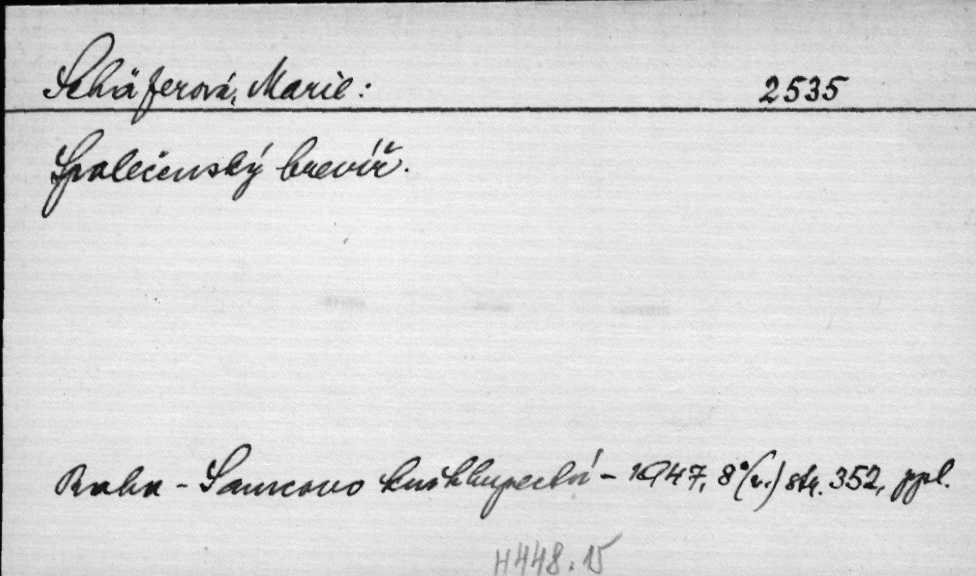 Schäferová, Marie: 2535
Společenský brevíř.
Praha - Samcovo knihkupectví - 1947, 8°(v.) str. 352, ppl.
H448.15